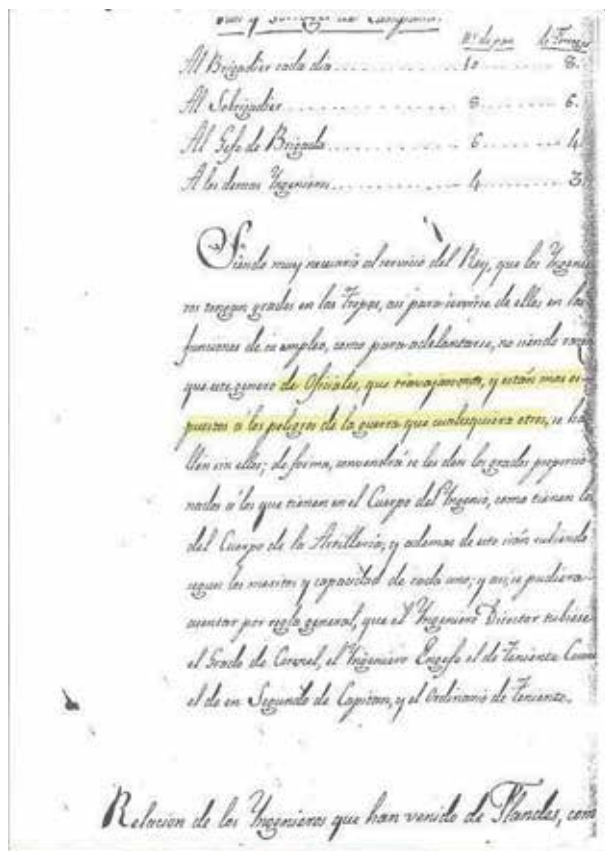 Pan y Forrages de Campaña.
Nº de pan de Forrages
Al Brigadier cada dia 10 8.
Al Sobrigadier 8 6.
Al Gefe de Brigada 6 4
A los demas Yngenieros 4 3
Siendo muy necesario al servicio del Rey, que los Yngenie
ros tengan grados en las Tropas, asi para servirse de ellos en las
funciones de su empleo, como para adelantarse, no siendo razon
que este genero de Oficiales, que travajan tanto, y están mas es-
puestos á los peligros de la guerra que cualesquiera otros, se ha
llen sin ellos; de forma, convendrá se les den los grados proporcio
nados á los que tienen en el Cuerpo del Yngenio, como tienen los
del Cuerpo de la Artilleria, y ademas de esto irán subiendo
segun los meritos y capacidad de cada uno; y asi, se pudiera
asentar por regla general, que el Yngeniero Director tubiese
el Grado de Coronel, el Yngeniero Engefe el de Teniente Coron
el de en Segundo de Capitan, y el Ordinario de Teniente.
Relacion de los Yngenieros que han venido de Flandes, com